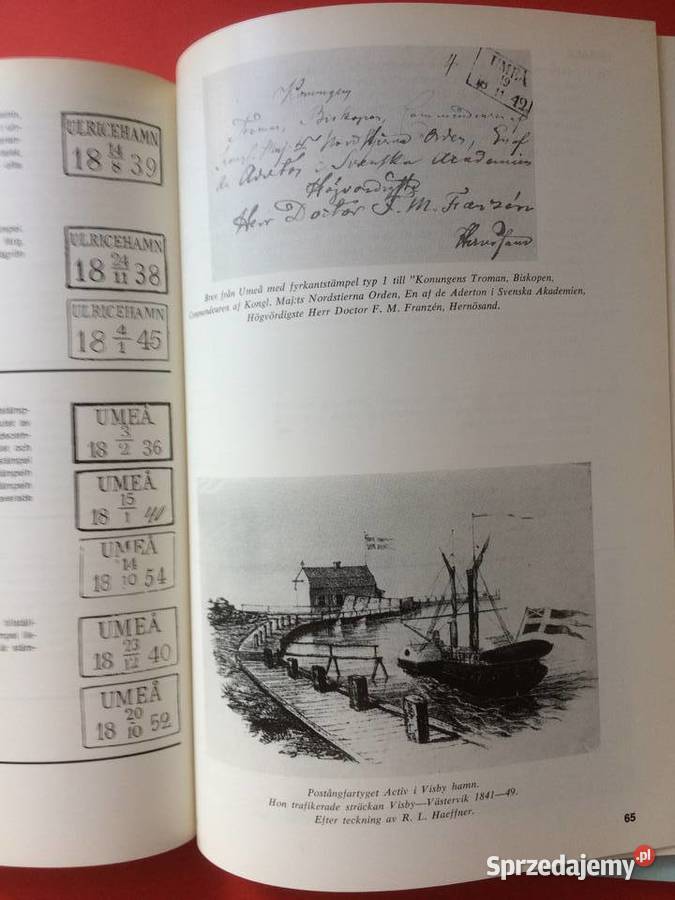 ULRICEHAMN
18 14/8 39
ULRICEHAMN
18 24/11 38
ULRICEHAMN
18 4/1 45
UMEÅ
18 3/2 36
UMEÅ
18 15/1 40
UMEÅ
18 14/10 54
UMEÅ
18 23/12 40
UMEÅ
18 20/10 52
4.
UMEÅ
19
11 42
Konungens
Troman, Biskopen, Commendeuren af
Kongl. Maj:ts Nordstierna Orden, En af
de Aderton i Svenska Academien
Högvördigste
Herr Doctor F. M. Franzén
Hernösand
Brev från Umeå med fyrkantstämpel typ 1 till "Konungens Troman, Biskopen,
Commendeuren af Kongl. Maj:ts Nordstierna Orden, En af de Aderton i Svenska Akademien,
Högvördigste Herr Doctor F. M. Franzén, Hernösand.
Postångfartyget Activ i Visby hamn.
Hon trafikerade sträckan Visby—Västervik 1841—49.
Efter teckning av R. L. Haeffner.
65
Sprzedajemy.pl